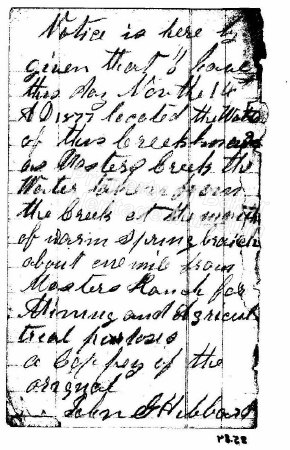 Notice is here by
given that I have
this day Nov the 14
AD 1877 located the Water
of this Creek known
as Masters Creek the
Water taken from
the Creek at the mouth
of warm Spring branch
about one mile from
Masters Ranch for
Mining and Agricul
tral purposes
a Coppey of the
orignal
John Hibbard